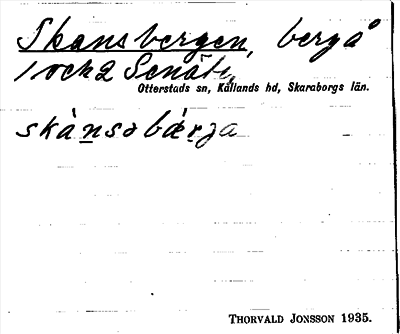 Skansbergen, berg å
1 och 2 Senäte,
Otterstads sn, Kållands hd, Skaraborgs län.
skánsəbǽrja
THORVALD JONSSON 1935.